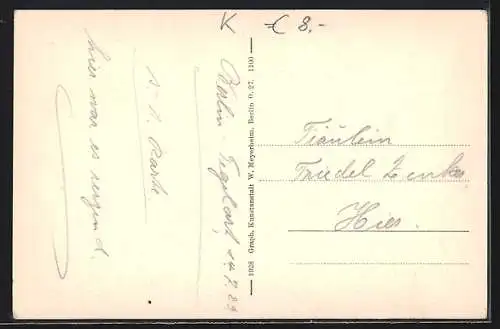 K € 8.-
Berlin-Tegelort, 14.7.29
hier war es reizend.
1028 Graph. Kunstanstalt W. Meyerheim, Berlin O. 27. 1100
Fräulein
Friedel Zenker
Hier.